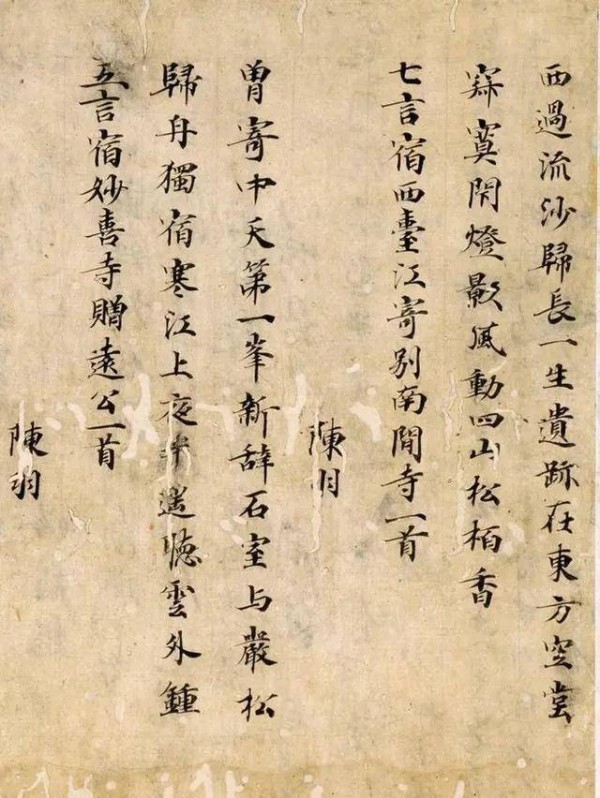 西過流沙歸長一生遺跡在東方空堂
寂寞閇燈影風動四山松栢香
七言宿西臺江寄別南閒寺一首
陳羽
曽寄中天第一峯新辞石室与嚴松
歸舟獨宿寒江上夜半遥聴雲外鍾
五言宿妙喜寺贈遠公一首
陳羽